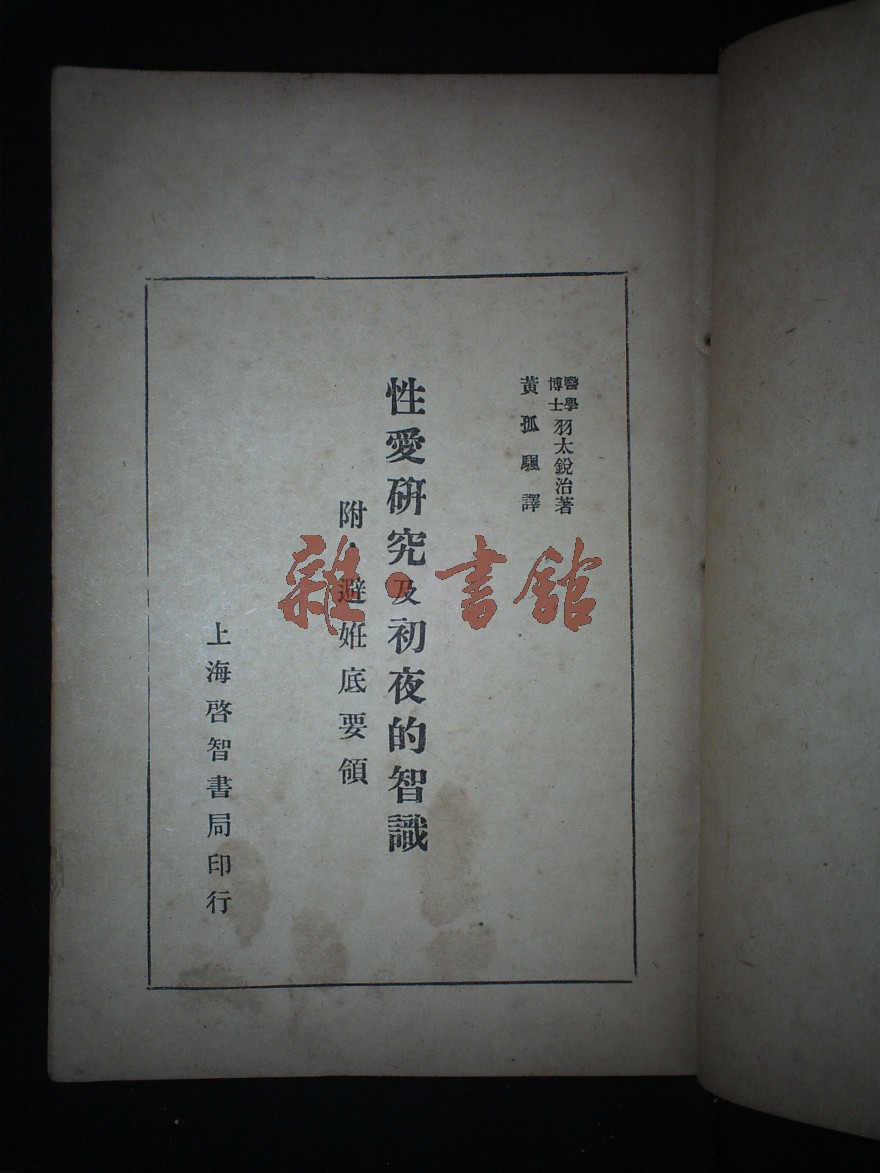 醫學博士 羽太銳治著
黃孤飄譯
性愛研究及初夜的智識
附·避姙底要領
上海啓智書局印行
雜·書館